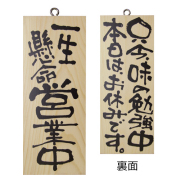 一生
懸命
営業中
只今味の勉強中
本日はお休みです。
裏面